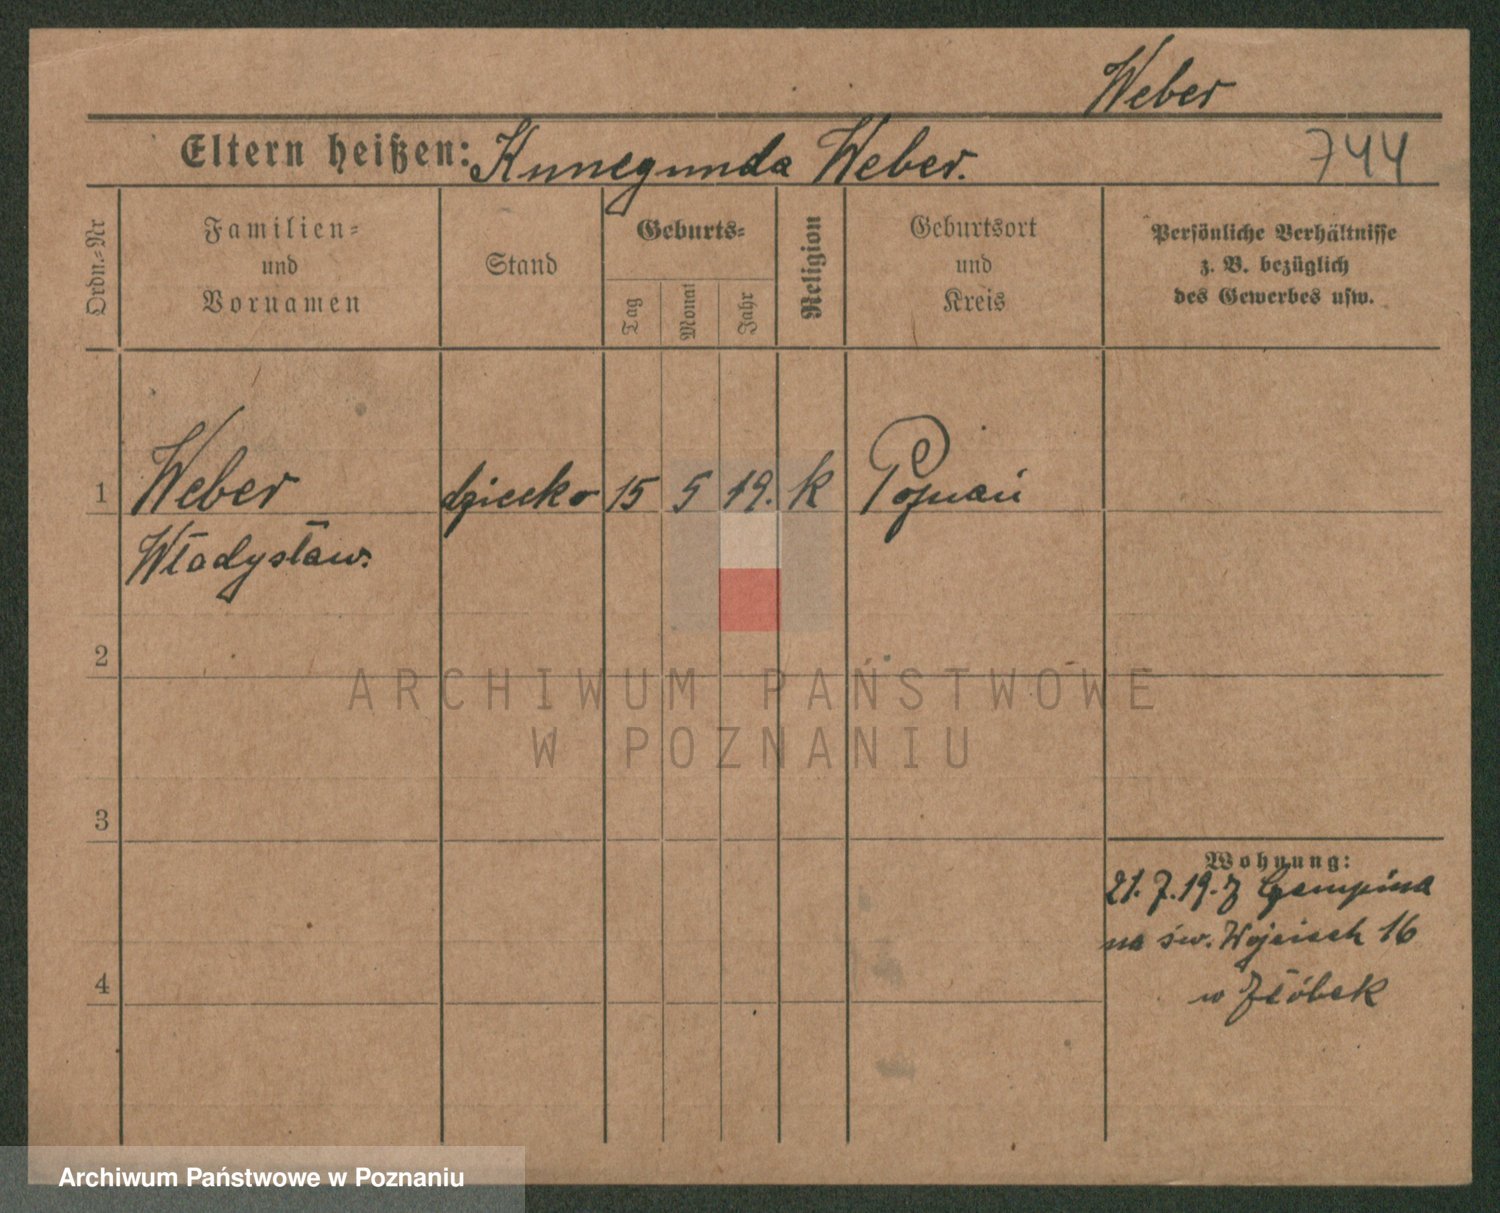 Weber
Eltern heißen: Kunegunda Weber.
744
Ordn.-Nr
Familien-
und
Vornamen
Stand
Geburts-
Tag
Monat
Jahr
Religion
Geburtsort
und
Kreis
Persönliche Verhältnisse
z. B. bezüglich
des Gewerbes usw.
1 Weber dziecko 15 5 19. k Poznań
Władysław.
2
ARCHIWUM PAŃSTWOWE
W POZNANIU
3
Wohnung:
21. 7. 19. z Czempina
na św. Wojciech 16
4
w Żłóbek
Archiwum Państwowe w Poznaniu